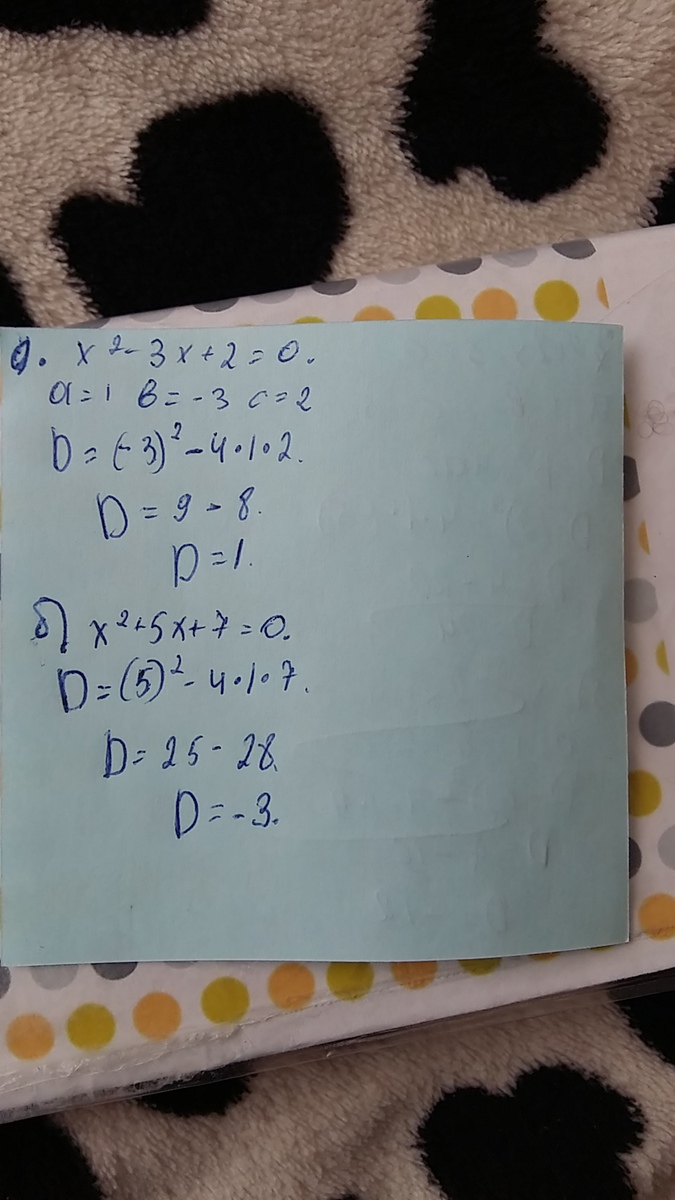 а. x² - 3x + 2 = 0.
a = 1 b = -3 c = 2
D = (-3)² - 4•1•2.
D = 9 - 8.
D = 1.
б) x² + 5x + 7 = 0.
D = (5)² - 4•1•7.
D = 25 - 28.
D = -3.